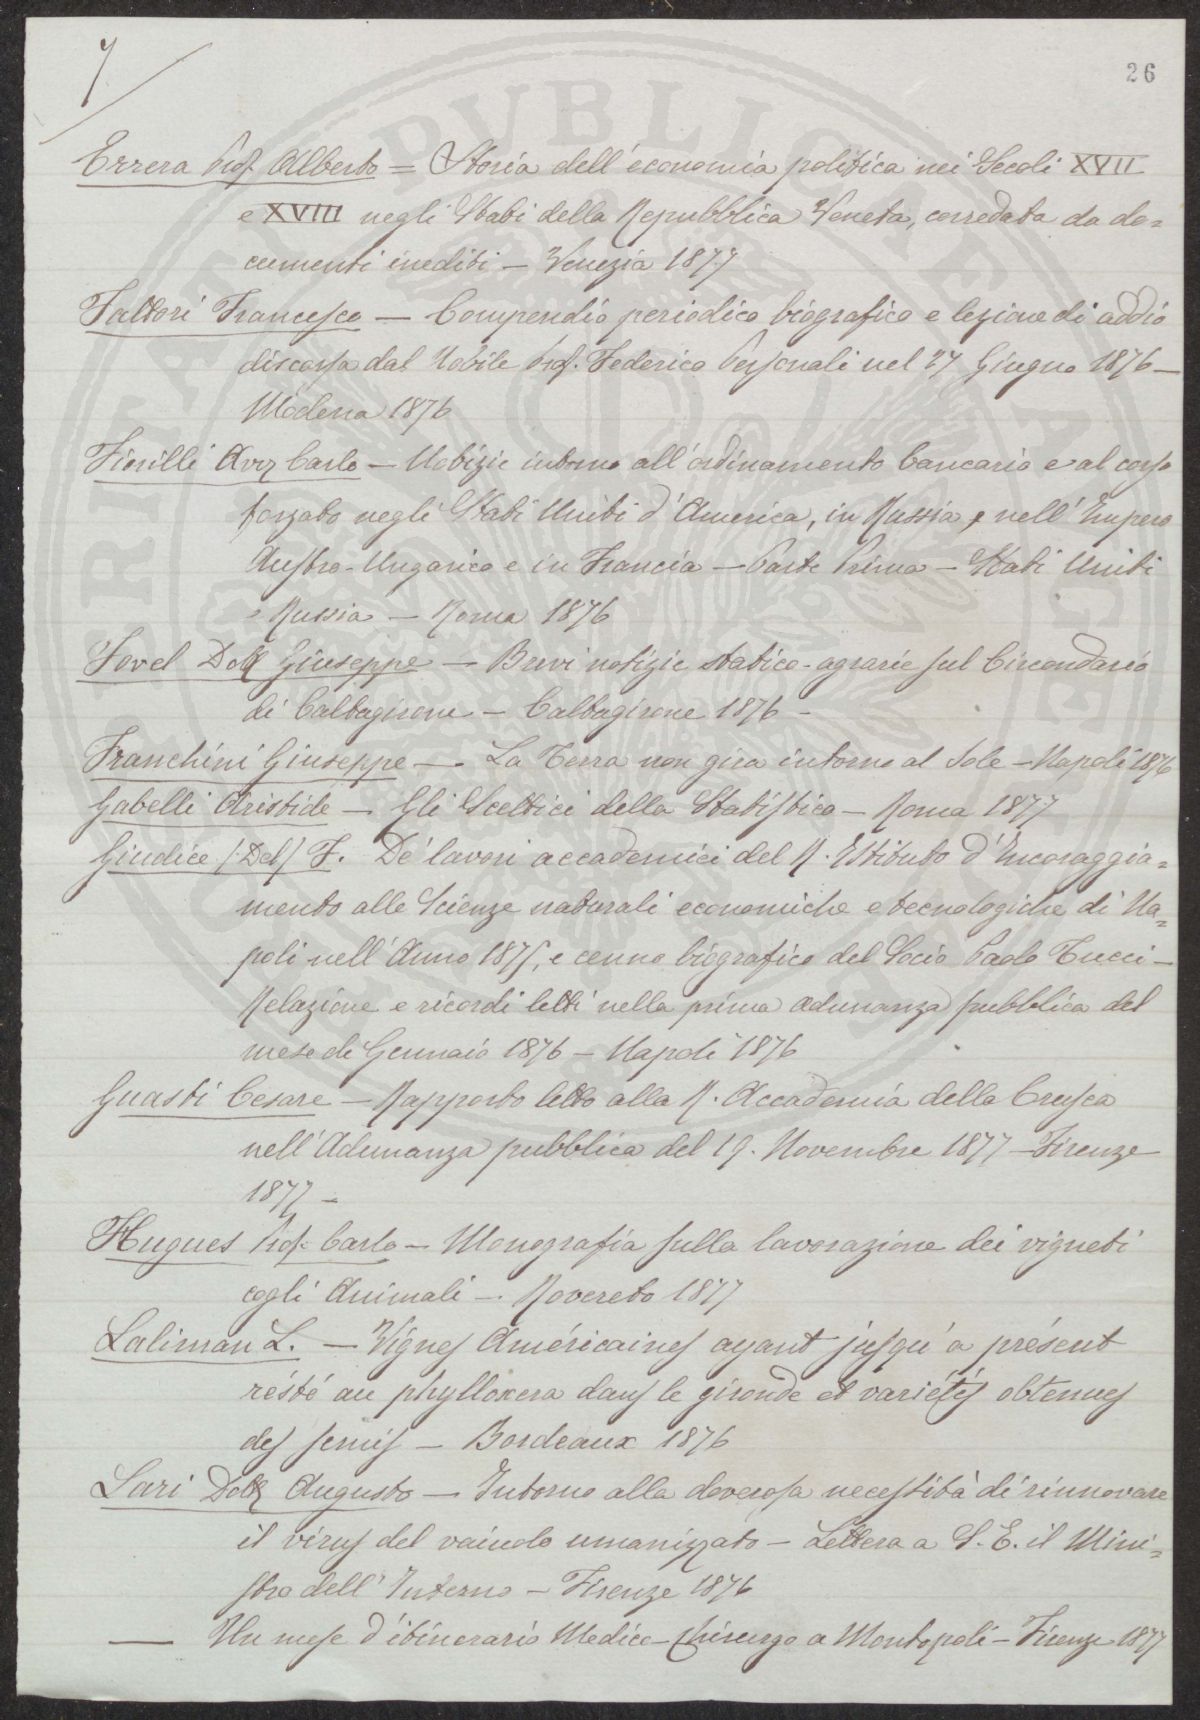 7
26
Errera Prof. Alberto = Storia dell'economia politica nei Secoli XVII
e XVIII negli Stati della Repubblica Veneta, corredata da do=
cumenti inediti — Venezia 1877
Fattori Francesco — Compendio periodico biografico e lezione di addio
discorsa dal Nobile Prof. Federico Personali nel 27 Giugno 1876 —
Modena 1876
Fiorilli Avv Carlo — Notizie intorno all'ordinamento bancario e al corso
forzato negli Stati Uniti d'America, in Russia, nell'Impero
Austro-Ungarico e in Francia — Parte Prima — Stati Uniti
e Russia — Roma 1876
Fovel Dott Giuseppe — Brevi notizie statico-agrarie sul Circondario
di Caltagirone — Caltagirone 1876 —
Franchini Giuseppe — La Terra non gira intorno al Sole — Napoli 1876
Gabelli Aristide — Gli Scettici della Statistica — Roma 1877
Giudice (Del) F. De' lavori accademici del R. Istituto d'Incoraggia=
mento alle Scienze naturali economiche e tecnologiche di Na=
poli nell'Anno 1875, e cenno biografico del Socio Paolo Tucci —
Relazione e ricordi letti nella prima adunanza pubblica del
mese di Gennaio 1876 — Napoli 1876
Guasti Cesare — Rapporto letto alla R. Accademia della Crusca
nell'Adunanza pubblica del 19. Novembre 1877 — Firenze
1877 —
Hugues Prof. Carlo — Monografia sulla lavorazione dei vigneti
cogli Animali — Rovereto 1877
Laliman L. — Vignes Américaines ayant jusqu'a présent
résté au phylloxera dans le gironde et variétés obtenues
des semis — Bordeaux 1876
Lari Dott Augusto — Intorno alla doverosa necessità di rinnovare
il virus del vaiuolo umanizzato — Lettera a S. E. il Mini=
stro dell'Interno — Firenze 1876
— Un mese d'itinerario Medico-Chirurgo a Montopoli — Firenze 1877
PUBLIC